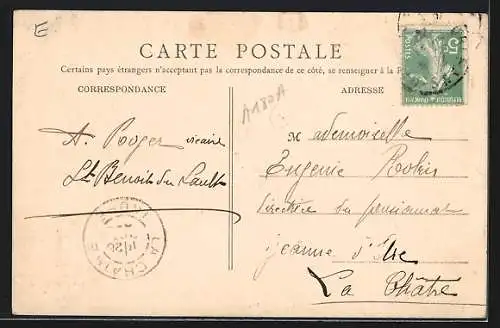 E
CARTE POSTALE
Certains pays étrangers n'acceptant pas la correspondance de ce côté, se renseigner à la P
CORRESPONDANCE
ADRESSE
A180A
5c
POSTES
A. Roger vicaire
St Benoit du Sault
Mademoiselle
Eugénie Robin
Directrice du pensionnat
Jeanne d'Arc
La Châtre
LA CHATRE